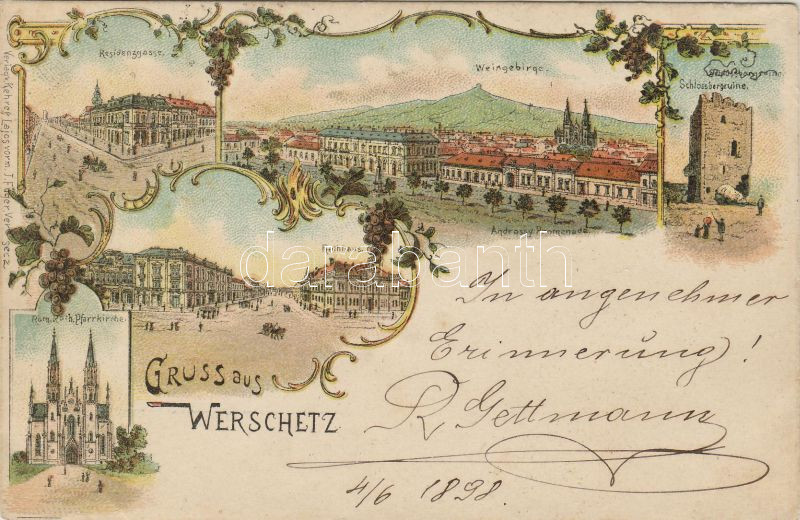 Residenzgasse.
Weingebirge.
Schlossbergruine.
Andrassy Promenade
Rom. Kath. Pfarrkirche
GRUSS aus
WERSCHETZ
In angenehmer
Erinnerung!
R. Gettmann
4/6 1898.
darabanth